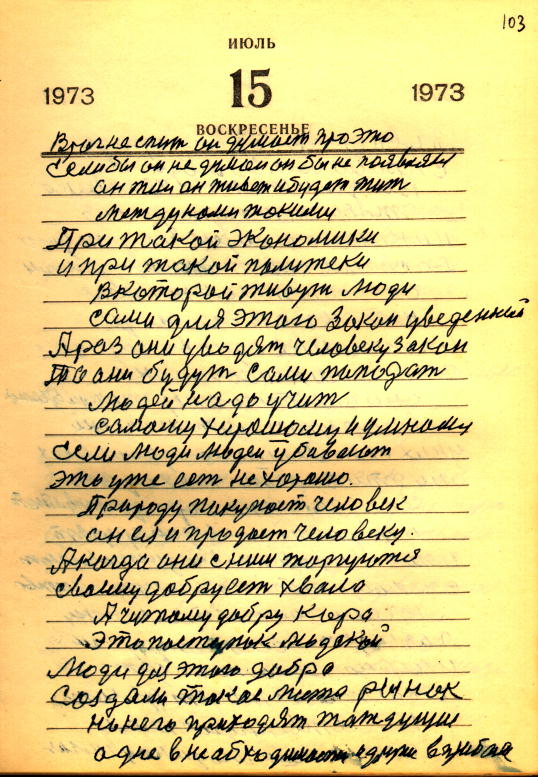 103
ИЮЛЬ
1973 15 1973
ВОСКРЕСЕНЬЕ
Враг не спит он думает про это
Если бы он не думал он бы не появлялся
он жил он живет и будет жит
между нами такими
При такой экономики
и при такой политеки
В которой живут люди
сами для этого Закон уведенний
А раз они уводят человеку закон
То они будут сами попадат
Людей надо учит
самому хорошому и умному
Если люди людей убивают
это уже ест не хорошо.
Природу покупает человек
он ея и продает человеку.
А когда они с ним торгуются
своему добру ест хвала
А чужому добру кара
Это поступок людской
Люди для этого добра
Создали такое места рынок
на него приходят жаждущие
одне в необходимости а други в прибыля